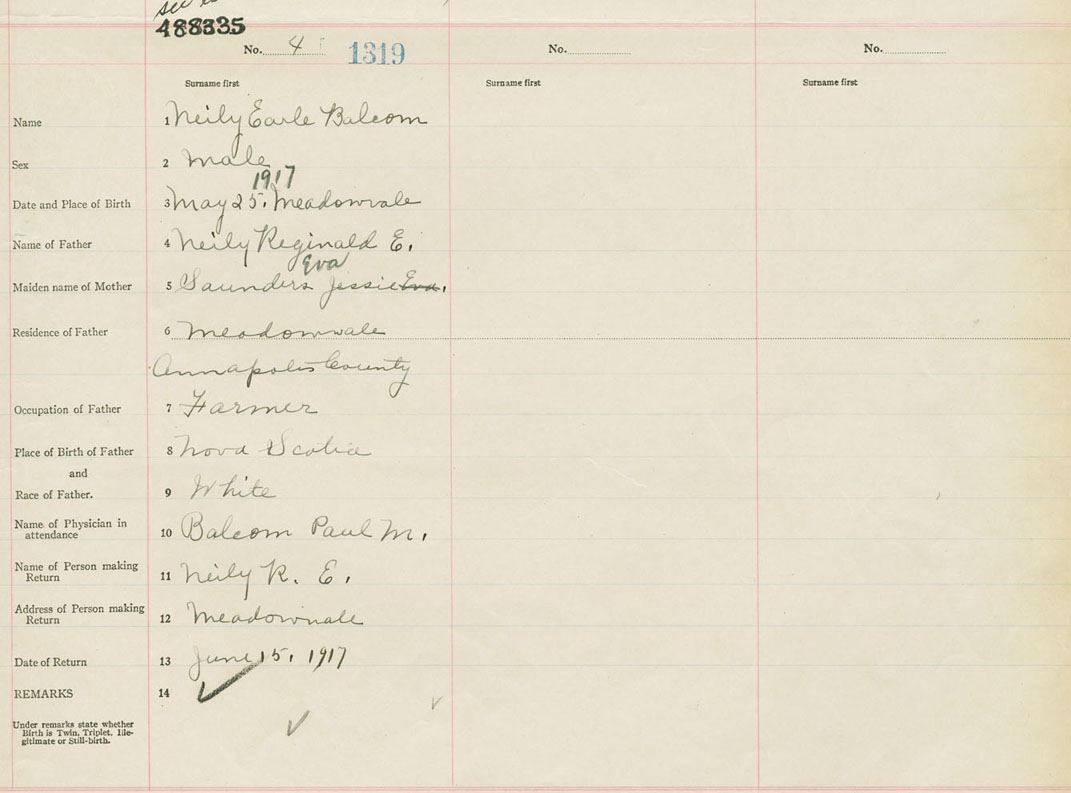 488335
No. 4 1319 No. No.
Surname first Surname first Surname first
Name 1 Neily Earle Balcom
Sex 2 Male
1917
Date and Place of Birth 3 May 25. Meadowvale
Name of Father 4 Neily Reginald E.
Eva
Maiden name of Mother 5 Saunders Jessie Eva.
Residence of Father 6 Meadowvale
Annapolis County
Occupation of Father 7 Farmer
Place of Birth of Father 8 Nova Scotia
and
Race of Father. 9 White
Name of Physician in
attendance 10 Balcom Paul M.
Name of Person making
Return 11 Neily R. E.
Address of Person making
Return 12 Meadowvale
Date of Return 13 June 15, 1917
REMARKS 14
Under remarks state whether
Birth is Twin, Triplet, Ille-
gitimate or Still-birth.